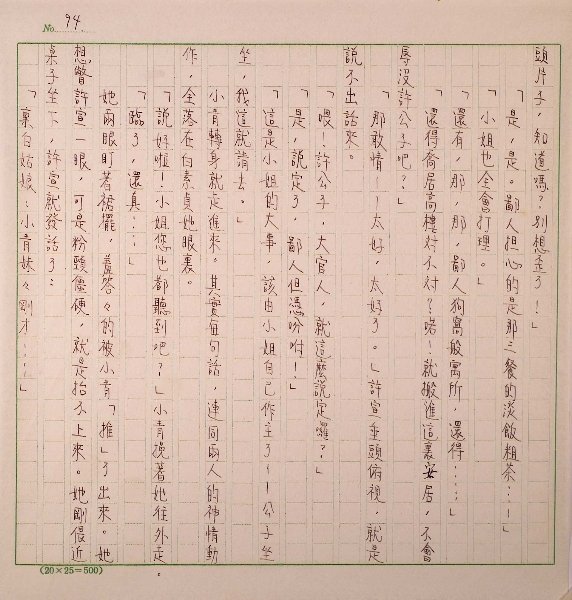 No. 94
頭片子，知道嗎？別想歪了！」
「是，是。鄙人担心的是那三餐的淡飯粗茶…！」
「小姐也全會打理。」
「還有，那，那，鄙人狗窩般寓所，還得……」
「還得喬居高樓对不对？喏！就搬進這裏安居，不會
辱沒許公子吧？」
「那敢情，太好，太好了。」許宣垂頭俯視，就是
說不出話來。
「喂！許公子，大官人，就這麼說定囉？」
「是，說定了，鄙人但憑吩咐！」
「這是小姐的大事，該由小姐自己作主了！公子坐
坐，我這就請去。」
小青轉身就走進來。其實每句話，連同兩人的神情動
作，全落在白素貞她眼裏。
「說好啦！小姐您也都聽到吧？」小青挽著她往外走。
「臨了，還真…」
她兩眼盯著裙擺，羞答々的被小青「推」了出來。她
想瞥許宣一眼，可是粉頸僵硬，就是抬不上來。她剛偎近
桌子坐下，許宣就發話了：
「稟白姑娘：小青妹々剛才……」
(20×25=500)